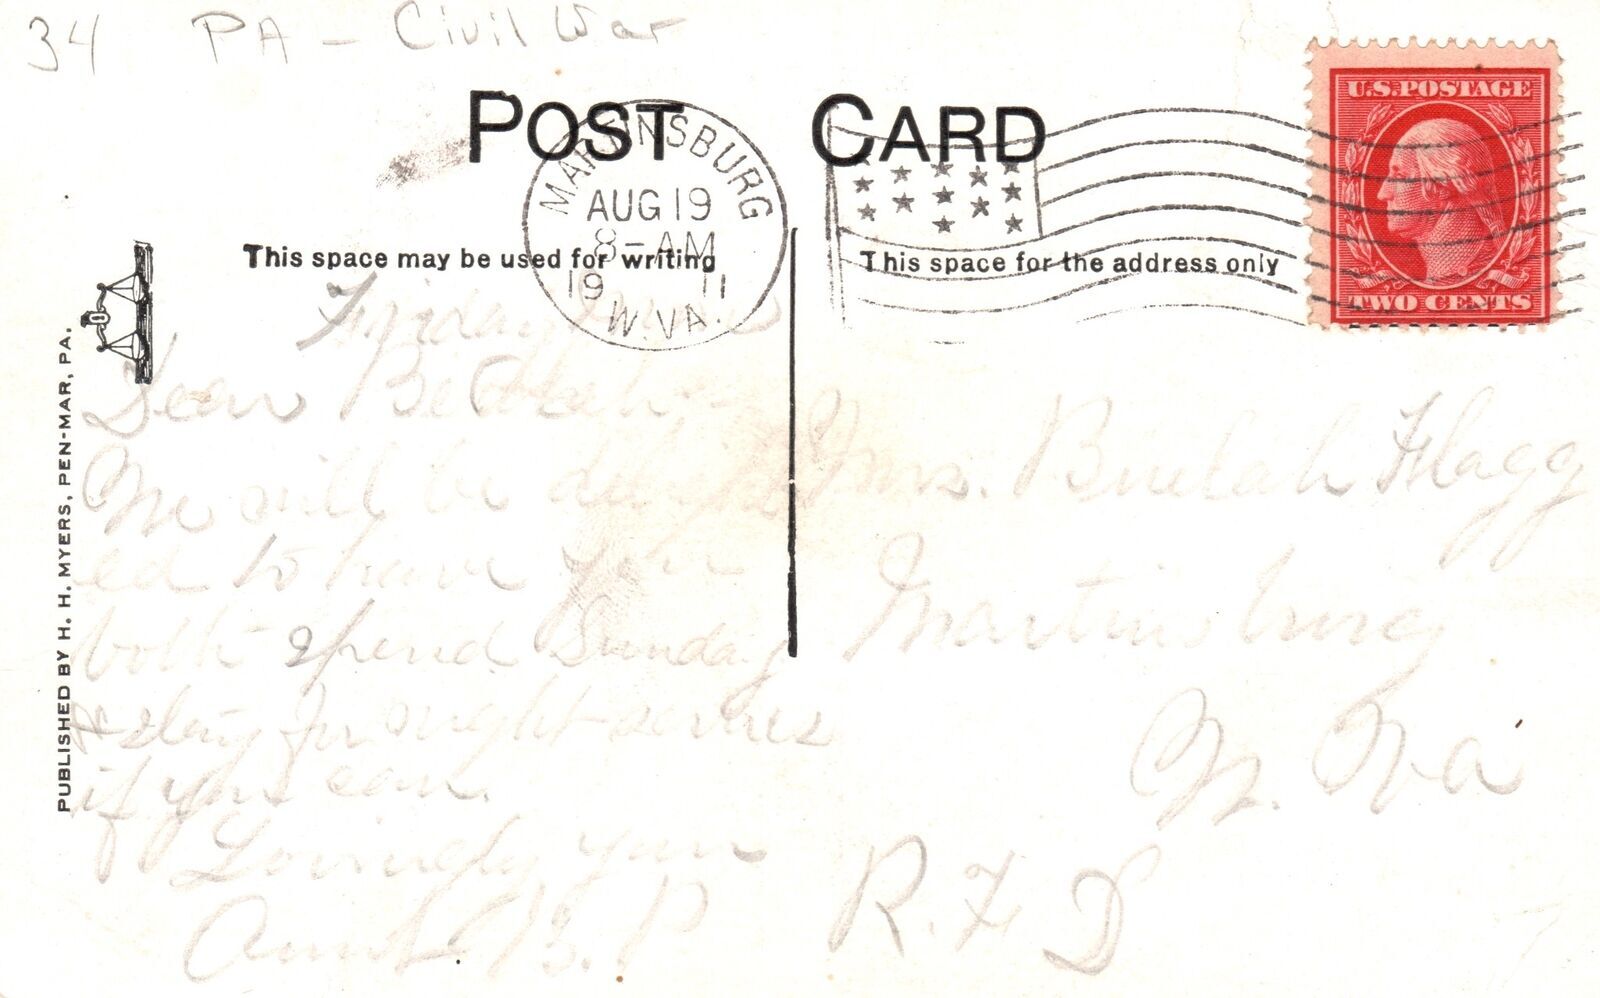 34 PA - Civil War
POST CARD
MARTINSBURG
AUG 19
8-AM
1911
W.VA.
U.S. POSTAGE
TWO CENTS
This space may be used for writing
This space for the address only
PUBLISHED BY H. H. MYERS, PEN-MAR, PA.
Friday
Dear Beulah -
We will be delight
ed to have you
both spend Sunday
& stay for night services
if you can.
Lovingly your
Aunt B. P
Mrs. Buelah Flagg
Martinsburg
W. Va
R. F D